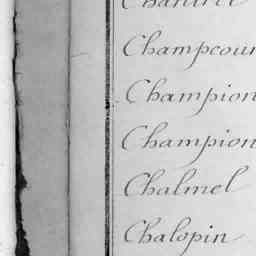 Champcour
Champion
Champion
Chalmel
Chalopin